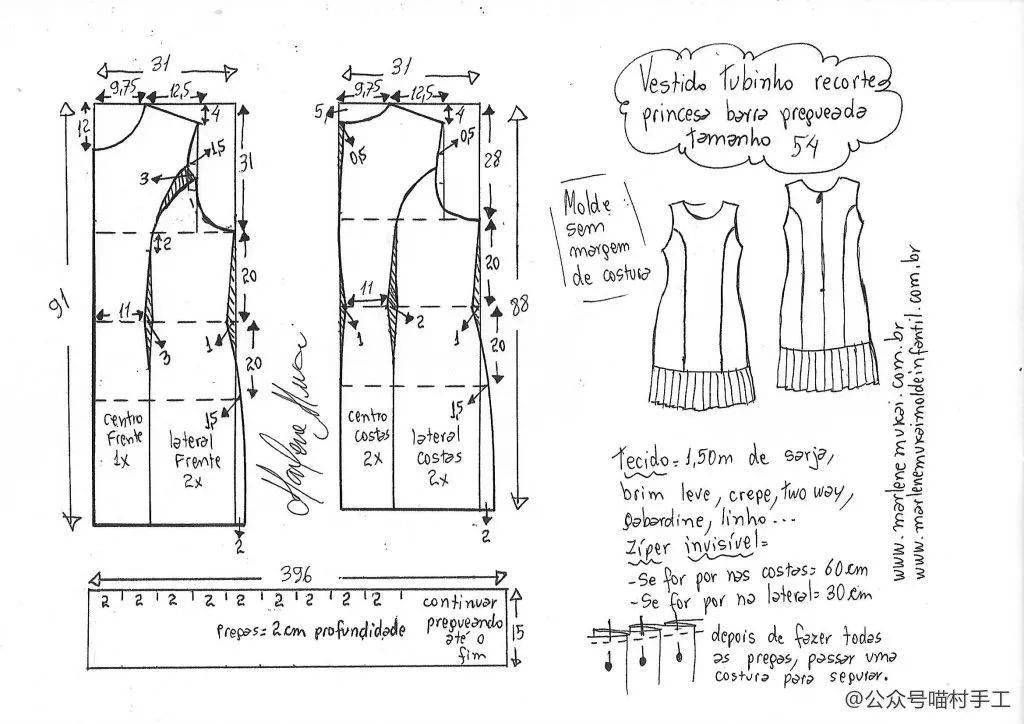 Vestido tubinho recorte
princesa barra pregueada
tamanho 54
Molde
sem
margem
de costura
31
9,75
12,5
4
12
1,5
3
31
2
20
11
91
3
1
20
1,5
centro
Frente
1x
lateral
Frente
2x
2
31
9,75
12,5
5
4
0,5
0,5
28
20
11
88
1
2
1
20
1,5
centro
costas
2x
lateral
costas
2x
2
Marlene Mukai
www.marlenemukai.com.br
www.marlenemukaimoldeinfantil.com.br
tecido= 1,50m de sarja,
brim leve, crepe, two way,
gabardine, linho...
Zíper invisível=
-Se for por nas costas= 60cm
-Se for por na lateral= 30cm
396
2 2 2 2 2 2 2 2 2
continuar
pregueando
até o
fim
Pregas= 2cm profundidade
15
depois de fazer todas
as pregas, passar uma
costura para segurar.
@公众号喵村手工